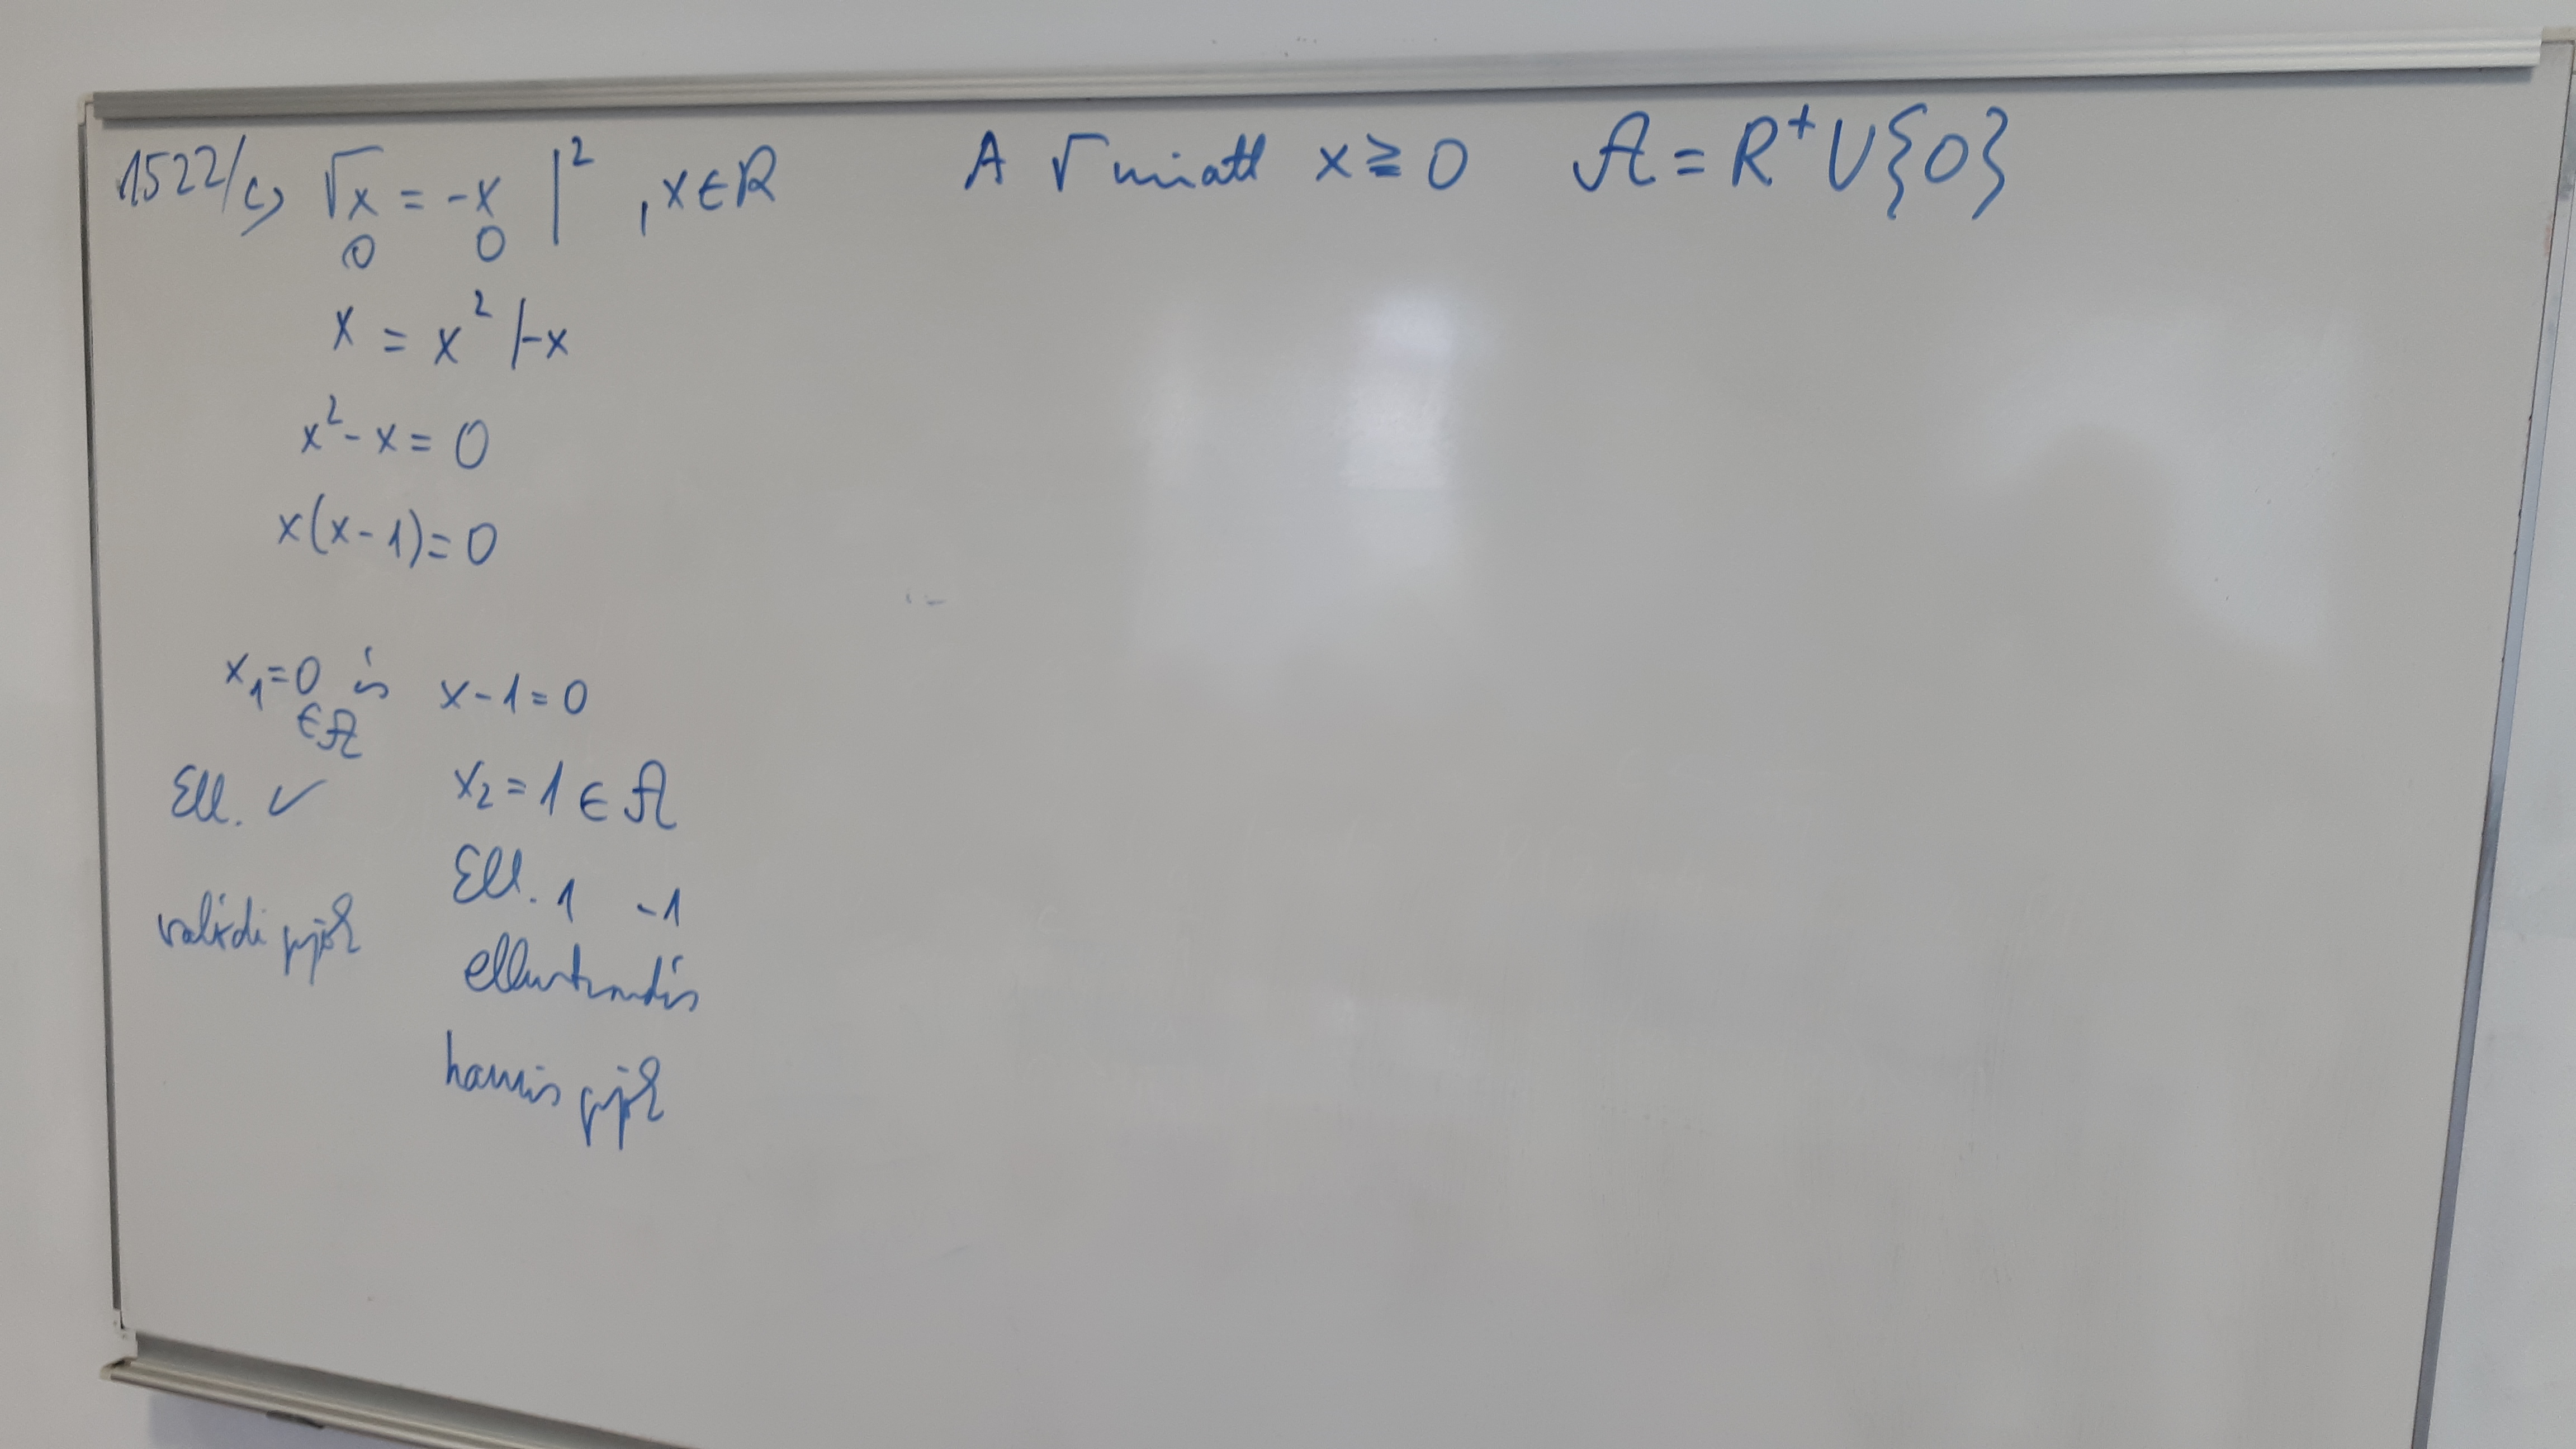 1522/c, √x = -x |² , x∈R A √ miatt x ≧ 0 A = R⁺∪{0}
0 0
x = x² |-x
x² - x = 0
x(x-1) = 0
x₁=0 és x-1=0
∈A
Ell. ✓ x₂ = 1 ∈ A
Ell. 1 -1
valódi gyök
ellentmondás
hamis gyök